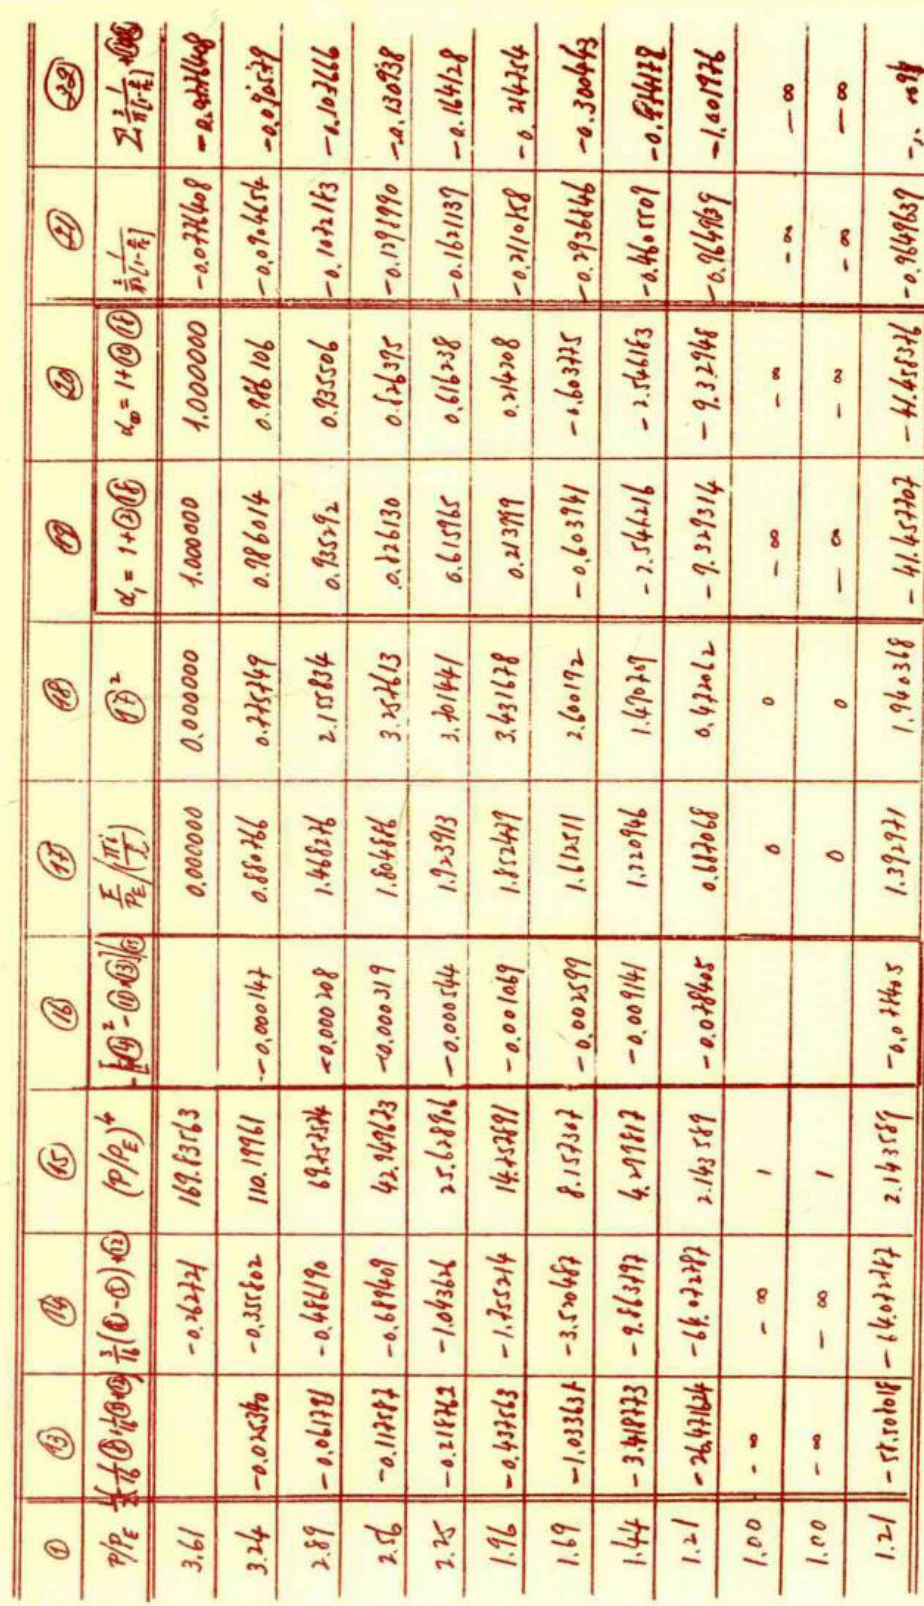 ① ⑬ ⑭ ⑮ ⑯ ⑰ ⑱ ⑲ ⑳ ㉑ ㉒
P/P_E (P/P_E)⁴ ⑰² α₁ = 1+②⑱ α∞ = 1+⑩⑱
3.61 -0.262721 169.83563 0.000000 0.000000 1.000000 1.000000 -0.0776408
3.24 -0.025340 -0.355802 110.19961 -0.000147 0.880766 0.775749 0.986014 0.986106 -0.0904654
2.89 -0.061791 -0.486190 69.757574 -0.000208 1.468276 2.155834 0.935292 0.935506 -0.1072183 -0.107666
2.56 -0.117587 -0.689409 42.949673 -0.000319 1.804886 3.257613 0.826130 0.826395 -0.1297990 -0.130938
2.25 -0.218762 -1.043626 25.628906 -0.000544 1.923913 3.701441 0.615965 0.616238 -0.1621139 -0.164128
1.96 -0.437563 -1.755214 14.757891 -0.001069 1.852479 3.431678 0.213999 0.214208 -0.2110158 -0.214754
1.69 -1.033637 -3.520487 8.157307 -0.002599 1.612511 2.600192 -0.603941 -0.603775 -0.2936846 -0.300443
1.44 -3.418773 -9.863797 4.299817 -0.009141 1.220946 1.490709 -2.546216 -2.546183 -0.4605509
1.21 -26.47164 -64.072787 2.143589 -0.078405 0.687068 0.472062 -9.329314 -9.32948 -0.9649639 -1.001976
1.00 -∞ -∞ 1 0 0 -∞ -∞ -∞ -∞
1.00 -∞ -∞ 1 0 0 -∞ -∞ -∞ -∞
1.21 -57.507018 -64.072787 2.143589 -0.078405 1.392971 1.940368 -41.457707 -41.458376 -0.9649639